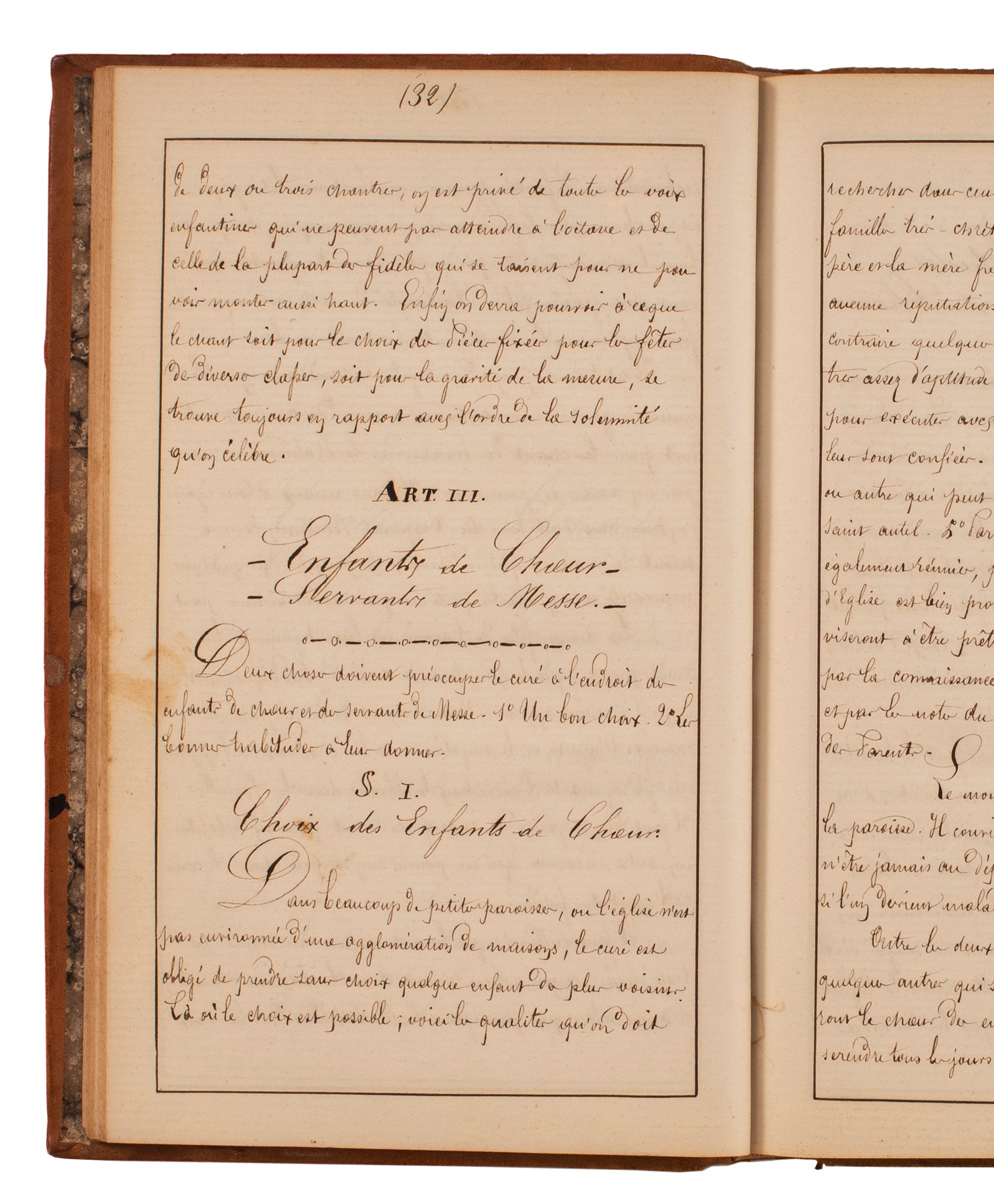 (32)
de deux ou trois chantres, on est privé de toutes les voix
enfantines qui ne peuvent pas atteindre à l'octave et de
celle de la plupart des fidèles qui se taisent pour ne pou
voir monter aussi haut. Enfin on devra pourvoir à ce que
le chant soit pour le choix des pièces fixées pour les fêtes
de diverses classes, soit pou la gravité de la mesure, se
trouve toujours en rapport avec l'ordre de la solemnité
qu'on célèbre.
ART. III.
- Enfants de Chœur -
- Servants de Messe. -
Deux choses doivent préoccuper le curé à l'endroit des
enfants de chœur et des servants de Messe. 1° Un bon choix. 2° Les
bonnes habitudes à leur donner.
S. I.
Choix des Enfants de Chœur.
Dans beaucoup de petites paroisses, ou l'église n'est
pas environnée d'une agglomération de maisons, le curé est
obligé de prendre sans choix quelque enfant des plus voisins.
Là où le choix est possible ; voici les qualités qu'on doit
rechercher dans ceu
familles très-chrét
père et la mère
aucune réputation
contraire quelque
tres assez d'aptitude
pour exécuter avec
leur sont confiées.
ou autre qui peut
saint autel. 5° Par
également réunies,
d'Eglise est bien pro
viseront à être prêt
par la connaissance
et par les notes du
des Parents -
Le mo
la paroisse. Il convi
n'être jamais au dé
si l'un devient mala
Outre les deux
quelques autres qui s
ront le chœur de
se rendre tous les jours